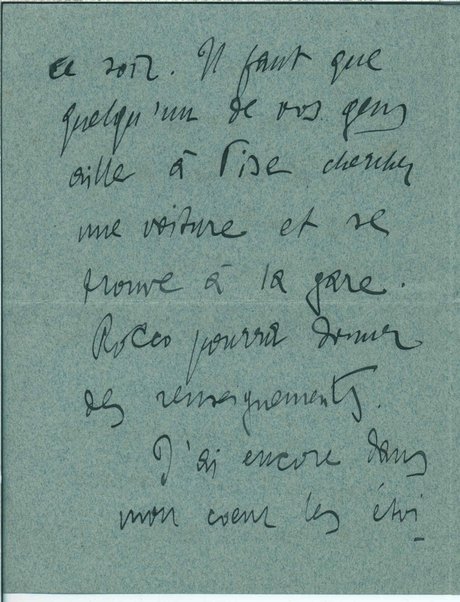 ce soir. Il faut que
quelqu'un de vos gens
aille à Pise chercher
une voiture et se
trouve à la gare.
Rocco pourra donner
des renseignements.
J'ai encore dans
mon coeur les étoi